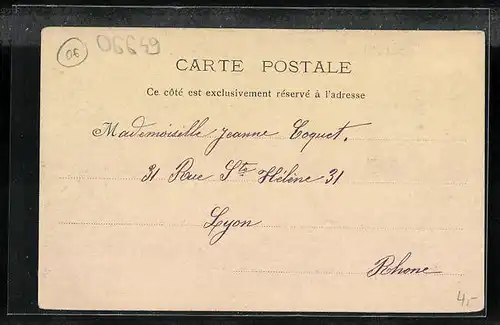 06
06649
CARTE POSTALE
Ce côté est exclusivement réservé à l'adresse
Mademoiselle Jeanne Coquet.
31 Rue Ste Hélène 31
Lyon
Rhone
4,-